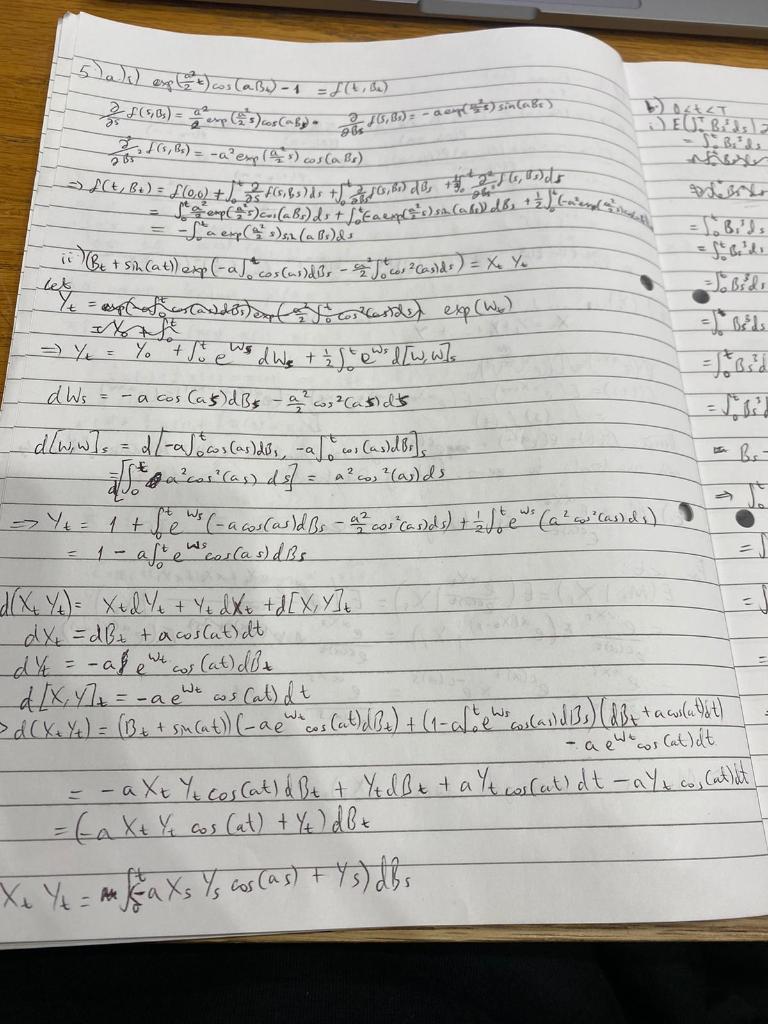 5) a) i) exp(a²/2 t) cos(aBt) - 1 = f(t, Bt)
∂/∂s f(s,Bs) = a²/2 exp(a²/2 s) cos(aBs) ∂/∂Bs f(s,Bs) = -a exp(a²/2 s) sin(aBs)
∂²/∂Bs² f(s,Bs) = -a² exp(a²/2 s) cos(aBs)
⇒ f(t, Bt) = f(0,0) + ∫₀ᵗ ∂/∂s f(s,Bs) ds + ∫₀ᵗ ∂/∂Bs f(s,Bs) dBs + ½∫₀ᵗ ∂²/∂Bs² f(s,Bs) ds
= ∫₀ᵗ a²/2 exp(a²/2 s) cos(aBs) ds + ∫₀ᵗ (-a exp(a²/2 s) sin(aBs)) dBs + ½∫₀ᵗ (-a² exp(a²/2 s)
= -∫₀ᵗ a exp(a²/2 s) sin(aBs) ds
ii) (Bt + sin(at)) exp(-a∫₀ᵗ cos(as) dBs - a²/2 ∫₀ᵗ cos²(as) ds) = Xt Yt
Let
Yt = exp(-a∫₀ᵗ cos(as) dBs) exp(-a²/2 ∫₀ᵗ cos²(as) ds) exp(Wt)
⇒ Yt = Y0 + ∫₀ᵗ e^Ws dWs + ½∫₀ᵗ e^Ws d[W,W]s
dWs = -a cos(as) dBs - a²/2 cos²(as) ds
d[W,W]s = d[-a∫₀ᵗ cos(as) dBs, -a∫₀ᵗ cos(as) dBs]s
= d[∫₀ᵗ a² cos²(as) ds] = a² cos²(as) ds
⇒ Yt = 1 + ∫₀ᵗ e^Ws (-a cos(as) dBs - a²/2 cos²(as) ds) + ½∫₀ᵗ e^Ws (a² cos²(as) ds)
= 1 - a∫₀ᵗ e^Ws cos(as) dBs
d(Xt Yt) = Xt dYt + Yt dXt + d[X,Y]t
dXt = dBt + a cos(at) dt
dYt = -a e^Wt cos(at) dBt
d[X,Y]t = -a e^Wt cos(at) dt
⇒ d(Xt Yt) = (Bt + sin(at)) (-a e^Wt cos(at) dBt) + (1 - a∫₀ᵗ e^Ws cos(as) dBs) (dBt + a cos(at) dt)
- a e^Wt cos(at) dt
= -a Xt Yt cos(at) dBt + Yt dBt + a Yt cos(at) dt - a Yt cos(at) dt
= (-a Xt Yt cos(at) + Yt) dBt
Xt Yt = ∫₀ᵗ (-a Xs Ys cos(as) + Ys) dBs
b) 0<t<T
i) E(∫₀ᵀ Bs³ ds |
= ∫₀ᵗ Bs³ ds
= ∫₀ᵗ Bs³ ds
= ∫₀ᵗ Bs³ ds
= ∫₀ᵗ Bs³ ds
= ∫₀ᵗ Bs³ ds
= ∫₀ᵗ Bs³ d
= ∫₀ᵗ Bs³ d
= Bs -
⇒ ∫
= ∫
= ∫